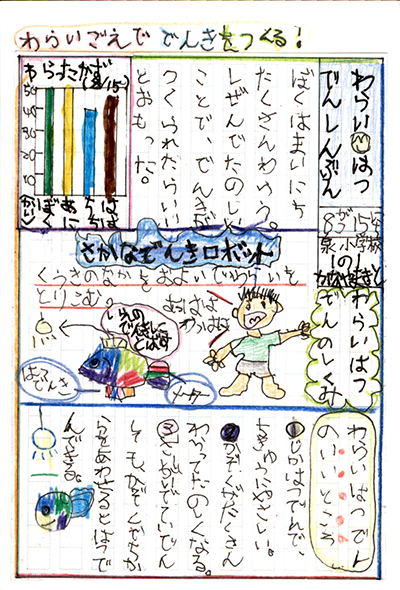 わらいごえで でんきをつくる!
わらいはつ
でんしんぶん
8がつ
小学校
ぼくはまいにち
たくさんわらう。
しぜんでたのしい
ことで、でんきが
つくられたらいい
とおもった。
わらったかず
8/15
50
40
30
20
10
ぼく
あに
ちち
はは
さかなでんきロボット
くうきのなかをおよいでわらいを
とりこむ。
わらいはつ
でんのしくみ
あははは
わはは
でんきに
とばす
メーター
はつ
でんき
わらいはつでん
のいいところ
しぜんはつでんで、
ちきゅうにやさしい。
かぞくがたくさん
わらってたのしくなる。
ていでん
しても、かぞくでちか
らをあわせるとはつで
んできる。